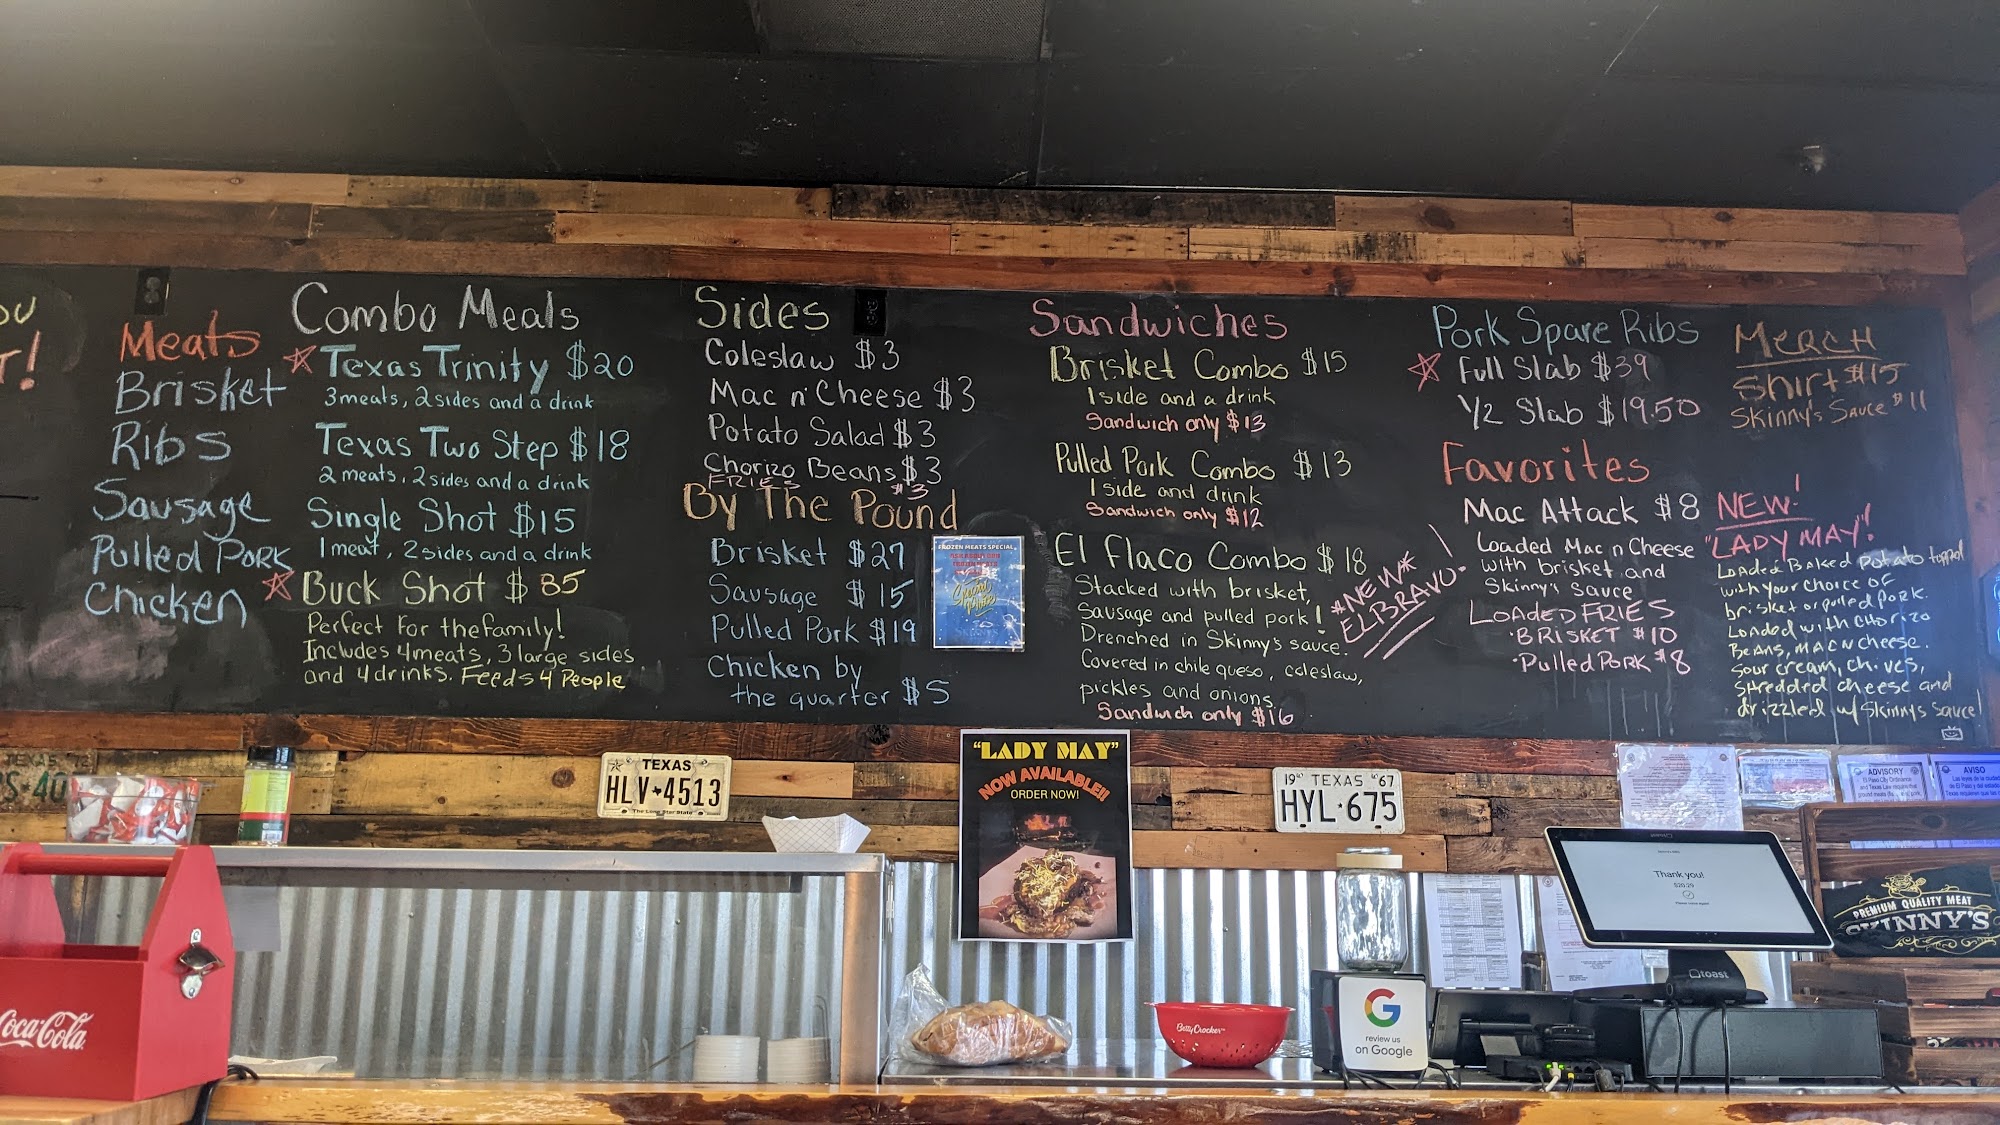 OU
T!
Meats
Brisket
Ribs
Sausage
Pulled Pork
Chicken
Combo Meals
Texas Trinity $20
3 meats, 2 sides and a drink
Texas Two Step $18
2 meats, 2 sides and a drink
Single Shot $15
1 meat, 2 sides and a drink
Buck Shot $85
Perfect For the family!
Includes 4 meats, 3 large sides
and 4 drinks. Feeds 4 People
Sides
Coleslaw $3
Mac n' Cheese $3
Potato Salad $3
Chorizo Beans $3
FRIES $3
By The Pound
Brisket $27
Sausage $15
Pulled Pork $19
Chicken by
the quarter $5
FROZEN MEATS SPECIAL
Sandwiches
Brisket Combo $15
1 side and a drink
Sandwich only $13
Pulled Pork Combo $13
1 side and drink
Sandwich only $12
El Flaco Combo $18
Stacked with brisket,
Sausage and pulled pork!
Drenched in Skinny's sauce.
Covered in chile queso, coleslaw,
pickles and onions
Sandwich only $16
*NEW*
ELBRAVO!
Pork Spare Ribs
Full Slab $39
1/2 Slab $19.50
Favorites
Mac Attack $8
Loaded Mac n Cheese
with brisket and
Skinny's Sauce
LOADED FRIES
·BRISKET $10
·Pulled PORK $8
MERCH
Shirt $15
Skinny's Sauce $11
NEW!
"LADY MAY"!
Loaded Baked Potato topped
with your choice of
brisket or pulled pork.
Loaded with chorizo
Beans, MAC N Cheese.
Sour cream, chives,
shredded cheese and
drizzled w/ Skinny's Sauce!
TEXAS '72
S·40
TEXAS
HLV★4513
The Lone Star State
"LADY MAY"
NOW AVAILABLE!!
ORDER NOW!
19 TEXAS 67
HYL★675
ADVISORY
El Paso City Ordinance
and Texas Law require that
AVISO
Las leyes de la ciudad
de El Paso y del estado de
Texas requieren que las
Thank you!
$20.29
toast
PREMIUM QUALITY MEAT
SKINNY'S
Coca-Cola
Betty Crocker
G
review us
on Google